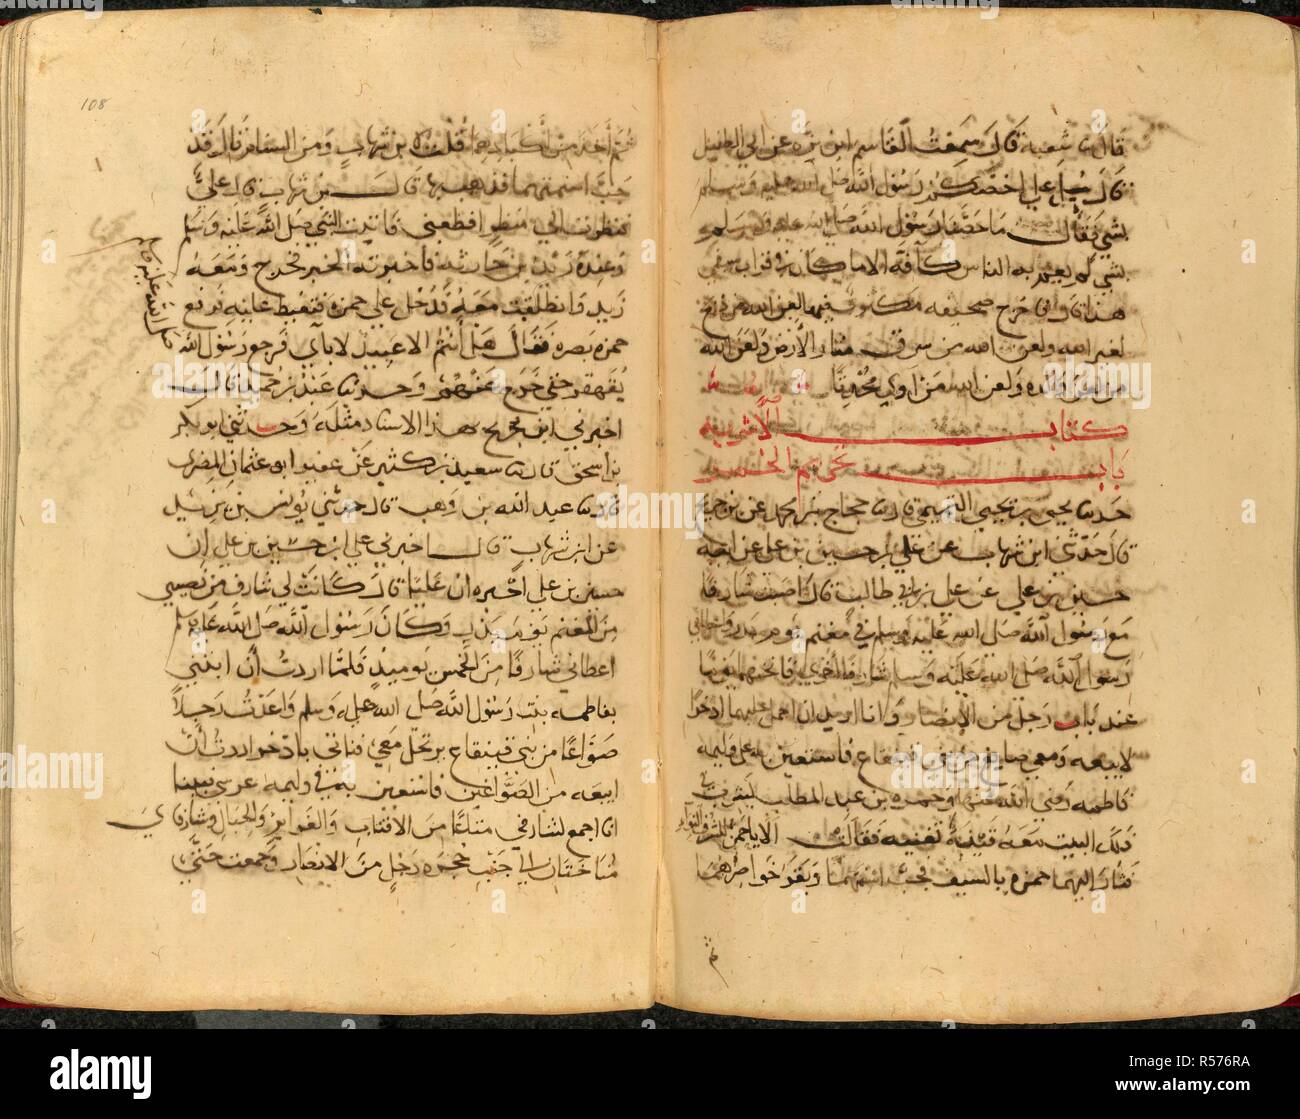 قال نا شعبة قال سمعت القاسم ابن بزه عن ابي الطفيل
قال سيل علي اخصكم رسول الله صلى الله عليه وسلم
بشي فقال ما خصنا رسول الله صلى الله عليه وسلم
بشي لم يعمم به الناس كافة الا ما كان في قراب سيفي
هذا قال فاخرج صحيفه مكتوب فيها لعن الله من ذبح
لغير الله ولعن الله من سرق منار الارض ولعن الله
من لعن والده ولعن الله من اوى محدثا
كتاب الاشربة
باب تحريم الخمر
حدثنا يحيى بن يحيى التميمي قال نا حجاج بن محمد عن بن جريج
قال حدثني ابن شهاب عن علي بن حسين بن علي عن ابيه
حسين بن علي عن علي بن ابي طالب قال اصبت شارفا
مع رسول الله صلى الله عليه وسلم في مغنم يوم بدر واعطاني
رسول الله صلى الله عليه وسلم شارفا اخرى فانختهما يوما
عند باب رجل من الانصار وانا اريد ان احمل عليهما اذخرا
لابيعه ومعي صايغ من بني قينقاع فاستعين به على وليمه
فاطمه رضي الله عنها وحمزه بن عبد المطلب يشرب في
ذلك البيت معه قينة تغنيه فقالت الا يا حمز للشرف النواء
فثار اليهما حمزه بالسيف فجب اسنمتهما وبقر خواصرهما
ثم
108
ثم اخذ من اكبادهما قلت لابن شهاب ومن السنام قال قد
جب اسنمتهما فذهب بها قال بن شهاب قال علي
فنظرت الى منظر افظعني فاتيت النبي صلى الله عليه وسلم
وعنده زيد بن حارثه فاخبرته الخبر فخرج ومعه
زيد وانطلقت معه فدخل على حمزه فتغيظ عليه فرفع
حمزه بصره فقال هل انتم الا عبيد لاباي فرجع رسول الله
صلى الله عليه وسلم
يقهقر حتى خرج عنهم وحدثنا عبد بن حميد قال
اخبرني ابن جريج بهذا الاسناد مثله وحدثني ابو بكر
بن اسحق قال نا سعيد بن كثير بن عفير ابو عثمان المصري
قال نا عبد الله بن وهب قال حدثني يونس بن يزيد
عن ابن شهاب قال اخبرني علي ابن حسين بن علي ان
حسين بن علي اخبره ان عليا قال كانت لي شارف من نصيبي
من المغنم يوم بدر وكان رسول الله صلى الله عليه وسلم
اعطاني شارفا من الخمس يوميذ فلما اردت ان ابتني
بفاطمه بنت رسول الله صلى الله عليه وسلم واعدت رجلا
صواغا من بني قينقاع يرتحل معي فناتي باذخر اردت ان
ابيعه من الصواغين فاستعين به في وليمه عرسي فبينا
انا اجمع لشارفي متاعا من الاقتاب والغراير والحبال وشارفاي
مناختان الى جنب حجره رجل من الانصار وجمعت حتى